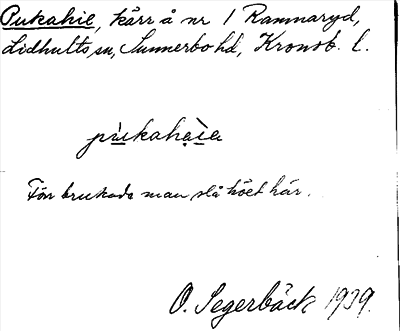 Pukahie, kärr å nr 1 Rammaryd,
Lidhults sn, Sunnerbo hd, Kronob. l.
pukahaia
Förr brukade man slå höet här.
O. Segerbäck 1939.